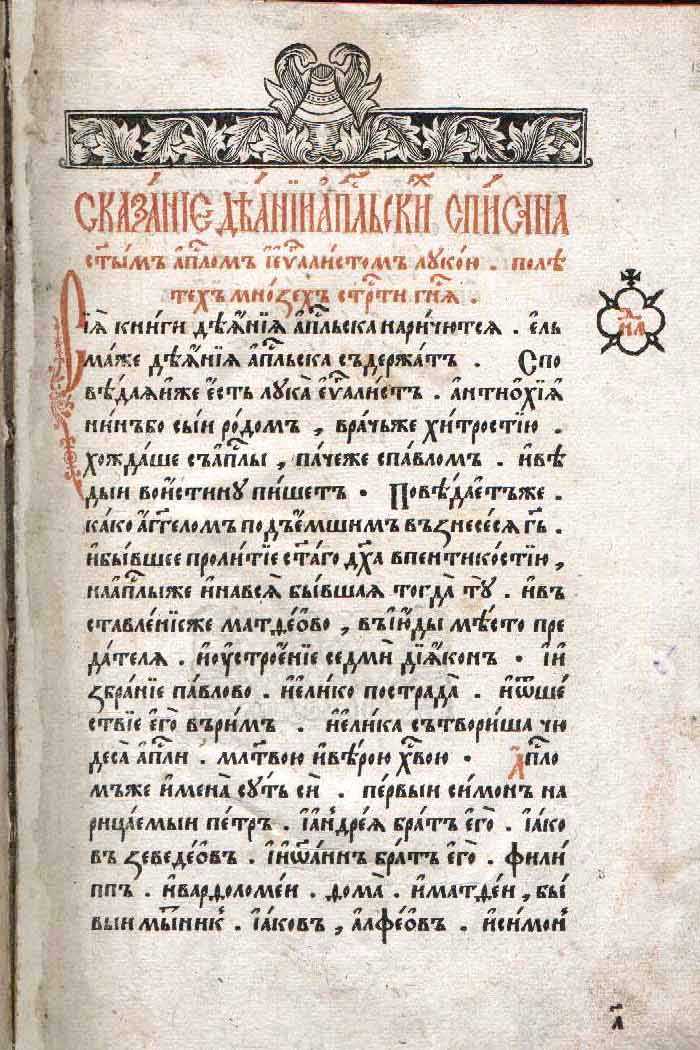 СКАЗА́НІЕ ДѢѦ́НІЙ АП҃ЛЬСКИ СПИ́САНА
ст҃ымъ а҆п҃ломъ и҆е҆ѵ҃алистомъ лꙋкою . полѣ
техъ мноꙁехъ стрⷭ҇ти гн҃ѧ .
Сїѧ̀ книги дѣѧ҆нїѧ а҆п҃льска наричютсѧ . ель
маже дѣѧ҆нїѧ а҆п҃льска съдержатъ . Спо
вѣдаѧйже є҆сть лꙋка̀ є҆ѵ҃алистъ . антиѻхїѧ
нинъбо сыи родомъ , врачьже хитростїю .
хождаше съа҆п҃лы , пачеже спавломъ . и҆вѣ
дыи вои҆стинꙋ пишетъ . Повѣдаетъже .
како а҆г҃гелом подъе҆мшимъ въꙁнесесѧ гь҃ .
и҆бывшее пролитїе ст҃аго дх҃а впентикостїю ,
наа҆п҃лыже и҆навсѧ бывшаѧ тогда̀ тꙋ . и҆въ
ставленїеже матѳеово , въїю҆ды мѣсто пре
дателѧ . и҆оу҆строенїе седмѝ дїѧ҆конъ . и҆и
ꙁбранїе павлово . и҆е҆лико пострада̀ . и҆ѿше
ствїе е҆го̀ въримъ . и҆е҆лика сътвориша чю
деса̀ а҆п҃ли . мл҃твою и҆вѣрою хв҃ою . А҆п҃ло
мъже и҆мена̀ сꙋть сѝ . первыи симонъ на
рицаемыи петръ . і҆а҆ндреѧ братъ е҆го̀ . і҆ако
въ ꙁеведеѡ҆въ . і҆и҆ѡаннъ братъ е҆го̀ . фили
ппъ . и҆варѳоломеи . ѳома̀ . и҆матѳеи , бы
выи мытникъ . і҆аковъ , алфеѡ҆въ . и҆симонъ
а҃